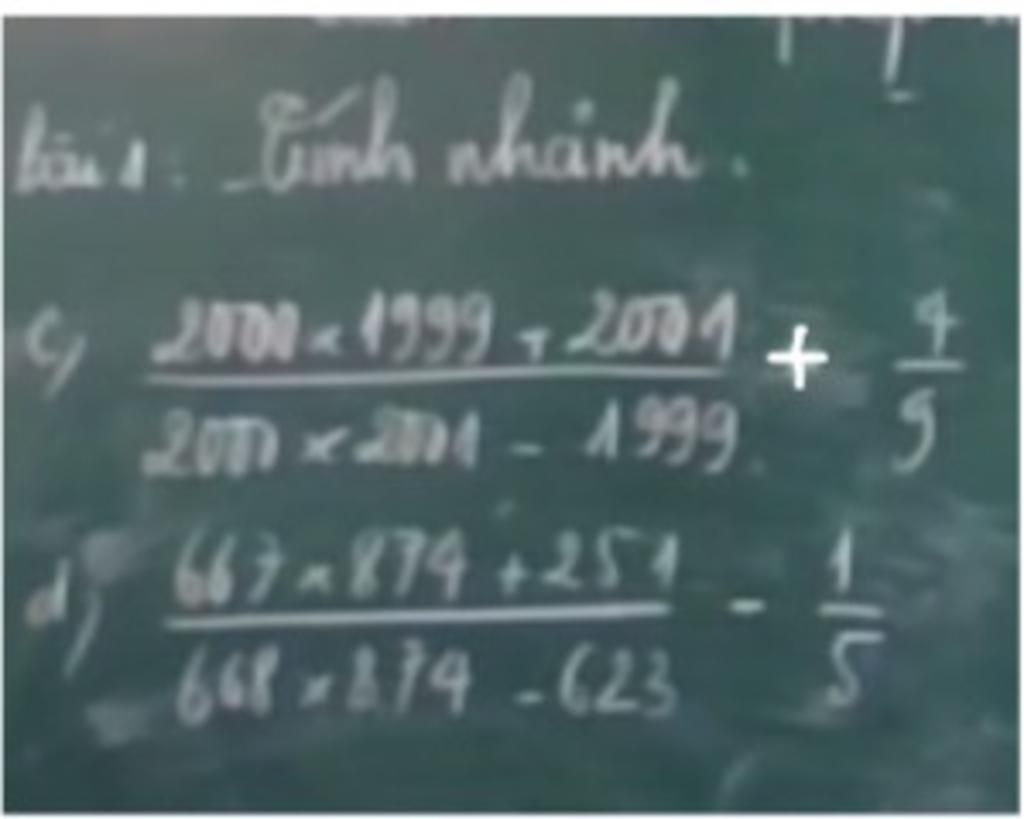 bài 1: Tính nhanh.
c, (2000 × 1999 + 2001) / (2000 × 2001 - 1999) + 4/9
d, (667 × 874 + 251) / (668 × 874 - 623) - 1/5